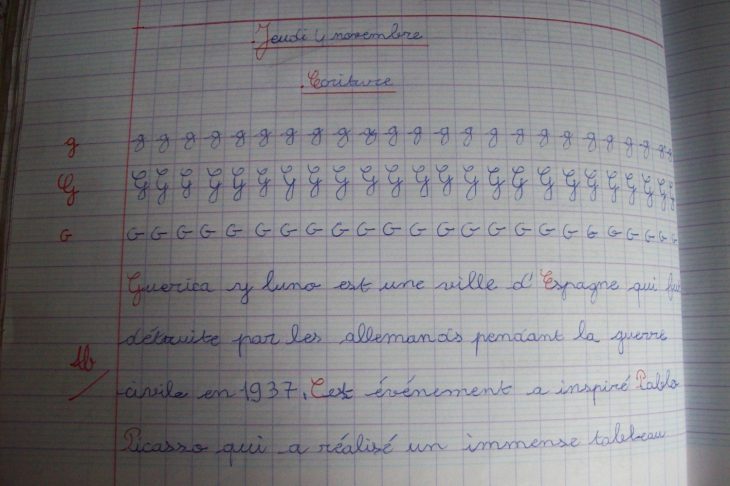 Jeudi 4 novembre
Ecriture
g g g g g g g g g g g g g g g g g g g g g g g
G G G G G G G G G G G G G G G G G G G G G G G
G G G G G G G G G G G G G G G G G G G G G G G
Guerica y luno est une ville d'Espagne qui fu
détruite par les allemands pendant la guerre
Tb civile en 1937. Cet événement a inspiré Pablo
Picasso qui a réalisé un immense tableau